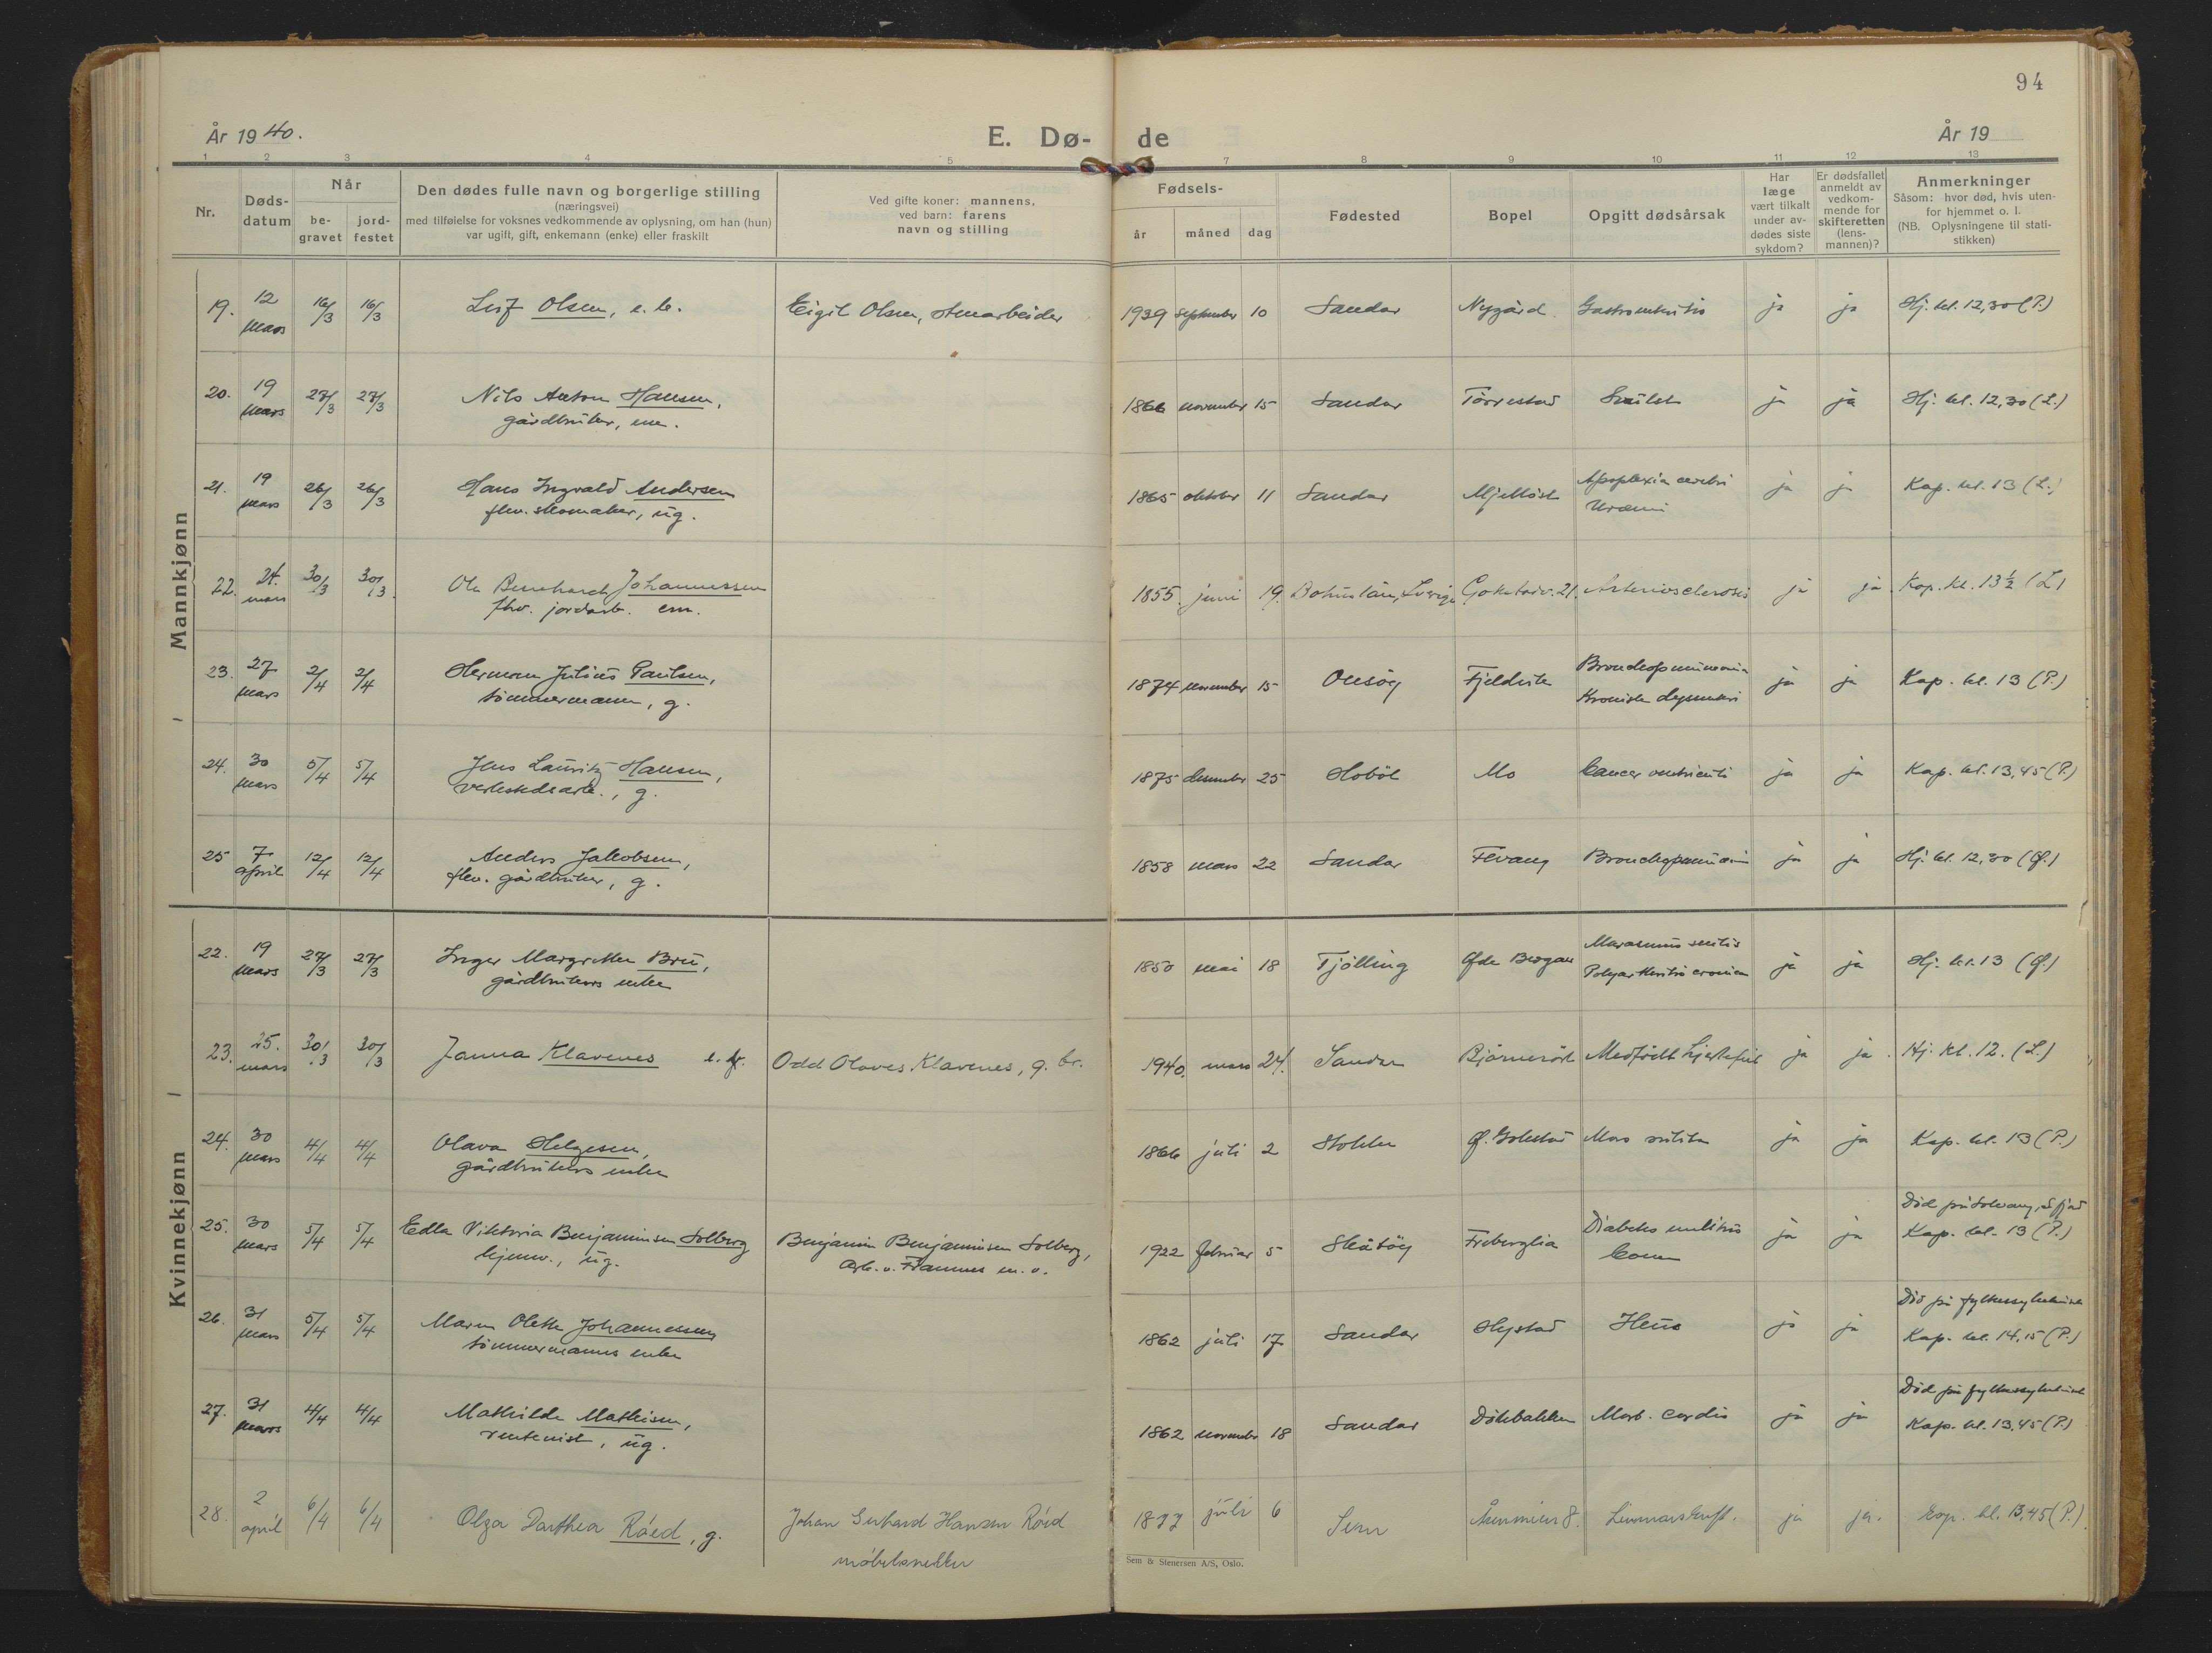 94
År 1940.
E. Dø- de
År 19
1 2 3 4 5 7 8 9 10 11 12 13
Nr.
Døds-
datum
Når
be-
gravet
jord-
festet
Den dødes fulle navn og borgerlige stilling
(næringsvei)
med tilføielse for voksnes vedkommende av oplysning, om han (hun)
var ugift, gift, enkemann (enke) eller fraskilt
Ved gifte koner: mannens,
ved barn: farens
navn og stilling
Fødsels-
år måned dag
Fødested
Bopel
Opgitt dødsårsak
Har
læge
vært tilkalt
under av-
dødes siste
sykdom?
Er dødsfallet
anmeldt av
vedkom-
mende for
skifteretten
(lens-
mannen)?
Anmerkninger
Såsom: hvor død, hvis uten-
for hjemmet o. l.
(NB. Oplysningene til stati-
stikken)
Mannkjønn
19. 12 mars 16/3 16/3 Leif Olsen, e. b. Eigil Olsen, stenarbeider 1939 september 10 Sandar Nygård Gastroenteritis ja ja Hj. kl. 12,30 (P.)
20. 19 mars 27/3 27/3 Nils Anton Hansen,
gårdbruker, em. 1866 november 15 Sandar Tørrestad ja ja Hj. kl. 12,30 (L.)
21. 19 mars 26/3 26/3 Hans Ingvald Andersen
fhv. skomaker, ug. 1865 oktober 11 Sandar Mjelløst Apoplexia cerebri
Uræmi ja ja Kap. kl. 13 (L.)
22. 24. mars 30/3 30/3 Ole Bernhard Johannessen
fhv. jordarb. em. 1855. juni 19. Bohuslän, Sverige Gokstadv. 21. Arteriosclerosis ja ja. Kap. kl. 13 ½ (L)
23. 27 mars 2/4 2/4 Herman Julius Paulsen,
tømmermann, g. 1874 november 15 Onsøy Fjeldvik Bronchopneumonia
Kronisk dysenteri ja ja Kap. kl. 13 (P.)
24. 30 mars 5/4 5/4 Jens Lauritz Hansen,
verkstedsarb., g. 1875 desember 25 Hobøl Mo Cancer ventriculi ja ja Kap. kl. 13,45 (P.)
25 7 april 12/4 12/4 Anders Jakobsen,
fhv. gårdbruker, g. 1858 mars 22 Sandar Fevang Bronchopneumoni ja ja Hj. kl. 12,30 (Ø.)
Kvinnekjønn
22. 19 mars 27/3 27/3 Inger Margrethe Bru,
gårdbrukers enke 1850 mai 18 Tjølling Øde Bergan Marasmus senilis
Polyarthritis cronica ja ja Hj. kl. 13 (Ø.)
23. 25. mars 30/3 30/3 Janna Klavenes e. f. Odd Olaves Klavenes, g. br. 1940. mars 24. Sandar Bjørnerød Medfødt hjertefeil ja ja. Hj. kl. 12. (L.)
24. 30 mars 4/4 4/4 Olava Helgesen,
gårdbrukers enke 1866 juli 2 Stokke Ø. Gokstad Mors subita ja ja Kap. kl. 13 (P.)
25. 30 mars 5/4 5/4 Edla Viktoria Benjaminsen Solberg
hjemv., ug. Benjamin Benjaminsen Solberg,
Arb. v. Framnes m. v. 1922 februar 5 Skåtøy Friberglia Diabetes mellitus
Coma ja ja Død på Solvang, S.fjord
Kap. kl. 13 (P.)
26. 31 mars 5/4 5/4 Maren Olette Johannessen
tømmermanns enke 1862 juli 17 Sandar Hystad Ileus ja ja Død på fylkessykehuset
Kap. kl. 14,15 (P.)
27. 31 mars 4/4 4/4 Mathilde Mathisen,
rentenist, ug. 1862 november 18 Sandar Dølebakken Morb. cordis ja ja Død på fylkessykehuset
Kap. kl. 13,45 (P.)
28. 2 april 6/4 6/4 Olga Dorthea Røed, g. Johan Gerhard Hansen Røed
møbelsnekker 1877 juli 6 Sem ja ja. Kap. kl. 13,45 (P.)
Sem & Stenersen A/S, Oslo.